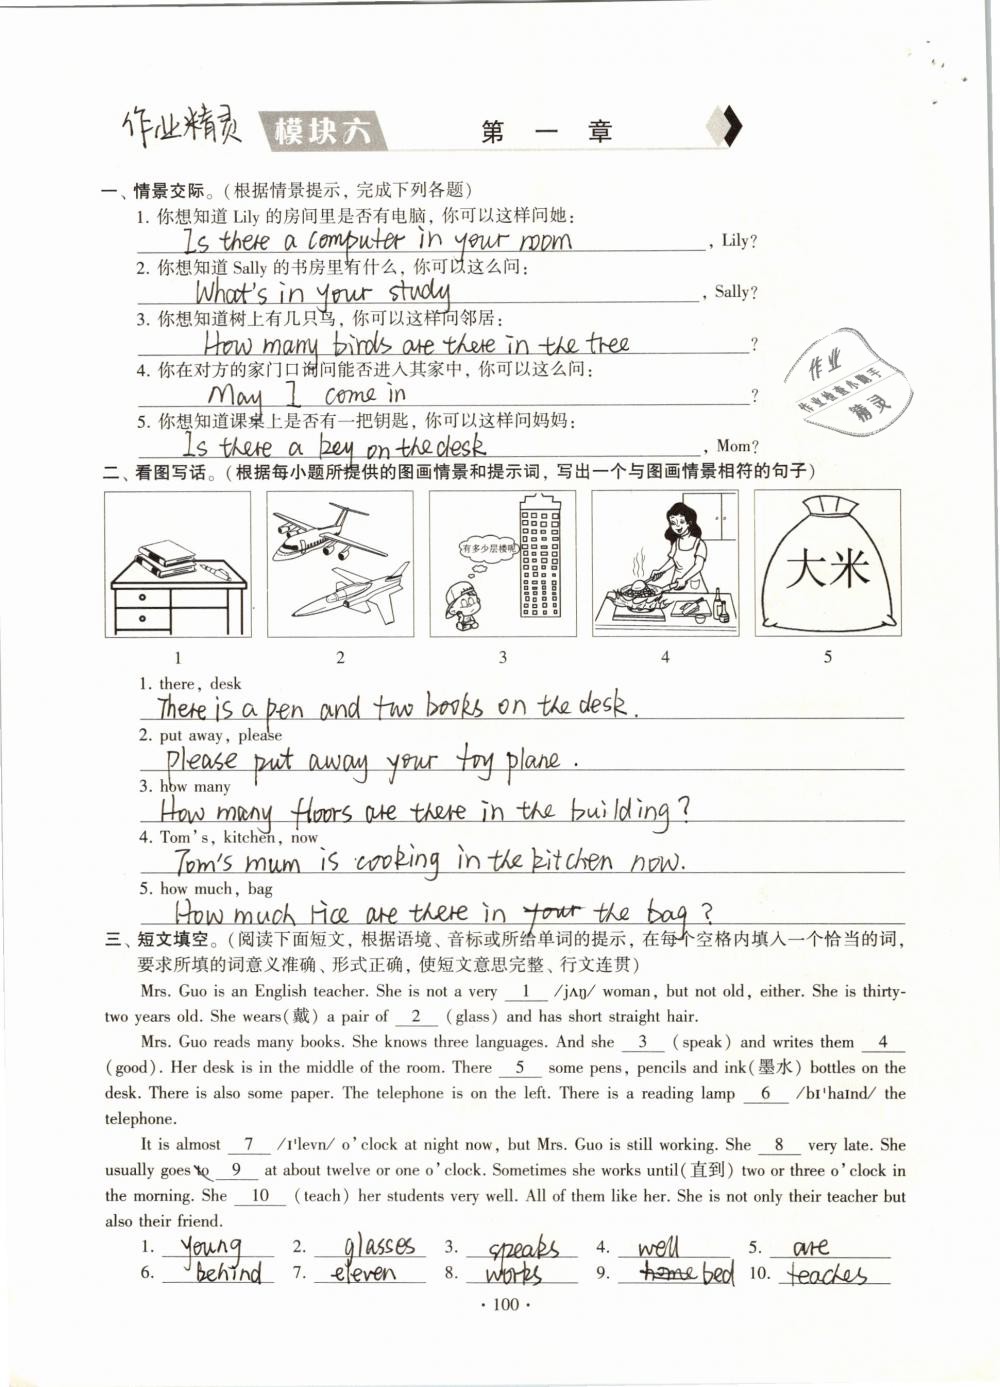 作业精灵 模块六 第一章
一、情景交际。(根据情景提示, 完成下列各题)
1. 你想知道 Lily 的房间里是否有电脑, 你可以这样问她:
Is there a computer in your room, Lily?
2. 你想知道 Sally 的书房里有什么, 你可以这么问:
What's in your study, Sally?
3. 你想知道树上有几只鸟, 你可以这样问邻居:
How many birds are there in the tree?
4. 你在对方的家门口询问能否进入其家中, 你可以这么问:
May I come in?
5. 你想知道课桌上是否有一把钥匙, 你可以这样问妈妈:
Is there a key on the desk, Mom?
作业
作业检查小助手
精灵
二、看图写话。(根据每小题所提供的图画情景和提示词, 写出一个与图画情景相符的句子)
有多少层楼呢
大米
1 2 3 4 5
1. there, desk
There is a pen and two books on the desk.
2. put away, please
Please put away your toy plane.
3. how many
How many floors are there in the building?
4. Tom's, kitchen, now
Tom's mum is cooking in the kitchen now.
5. how much, bag
How much rice are there in your the bag?
三、短文填空。(阅读下面短文, 根据语境、音标或所给单词的提示, 在每个空格内填入一个恰当的词,
要求所填的词意义准确、形式正确, 使短文意思完整、行文连贯)
Mrs. Guo is an English teacher. She is not a very 1 /jʌŋ/ woman, but not old, either. She is thirty-
two years old. She wears(戴) a pair of 2 (glass) and has short straight hair.
Mrs. Guo reads many books. She knows three languages. And she 3 (speak) and writes them 4
(good). Her desk is in the middle of the room. There 5 some pens, pencils and ink(墨水) bottles on the
desk. There is also some paper. The telephone is on the left. There is a reading lamp 6 /bɪ'haɪnd/ the
telephone.
It is almost 7 /ɪ'levn/ o'clock at night now, but Mrs. Guo is still working. She 8 very late. She
usually goes to 9 at about twelve or one o'clock. Sometimes she works until(直到) two or three o'clock in
the morning. She 10 (teach) her students very well. All of them like her. She is not only their teacher but
also their friend.
1. young 2. glasses 3. speaks 4. well 5. are
6. behind 7. eleven 8. works 9. home bed 10. teaches
· 100 ·